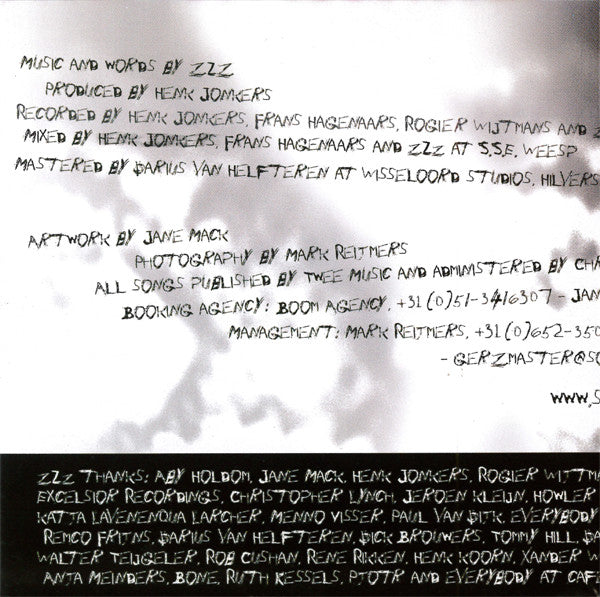 MUSIC AND WORDS BY ZZZ
PRODUCED BY HENK JONKERS
RECORDED BY HENK JONKERS, FRANS HAGENAARS, ROGIER WIJTMANS AND Z
MIXED BY HENK JONKERS, FRANS HAGENAARS AND ZZZ AT S.S.E, WEESP
MASTERED BY DARIUS VAN HELFTEREN AT WISSELOORD STUDIOS, HILVERS
ARTWORK BY JANE MACK
PHOTOGRAPHY BY MARK REITMERS
ALL SONGS PUBLISHED BY TWEE MUSIC AND ADMINISTERED BY CHR
BOOKING AGENCY: BOOM AGENCY, +31(0)51-3416307 - JAN
MANAGEMENT: MARK REITMERS, +31(0)652-350
- GERZMASTER@SO
WWW.S
ZZZ THANKS: ABY HOLDOM, JANE MACK, HENK JONKERS, ROGIER WIJTMA
EXCELSIOR RECORDINGS, CHRISTOPHER LYNCH, JEROEN KLEIJN, HOWLER
KATJA LAVENENQUA LARCHER, MENNO VISSER, PAUL VAN DIJK, EVERYBODY
REMCO FRIJNS, DARIUS VAN HELFTEREN, DICK BROUWERS, TOMMY HILL, DA
WALTER TEIJGELER, ROB CUSHAN, RENE RIKKEN, HENK KOORN, XANDER W
ANJA MEINDERS, BONE, RUTH KESSELS, PJOTR AND EVERYBODY AT CAFE